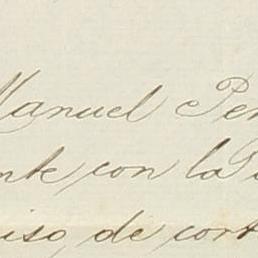 Manuel Per
nte con la
iso, de cort